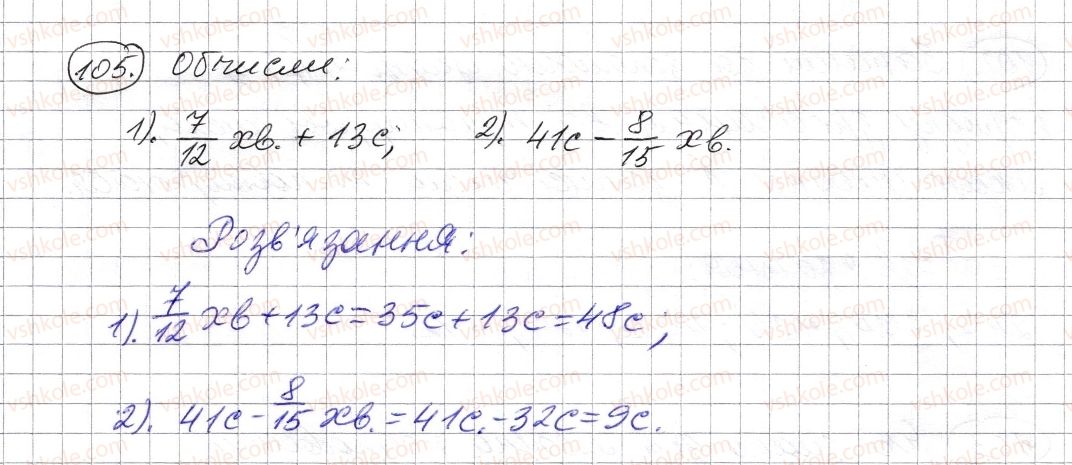 105. Обчисли:
1). 7/12 хв. + 13с; 2). 41с - 8/15 хв.
Розв'язання:
1). 7/12 хв + 13с = 35с + 13с = 48с;
2). 41с - 8/15 хв. = 41с. - 32с = 9с.